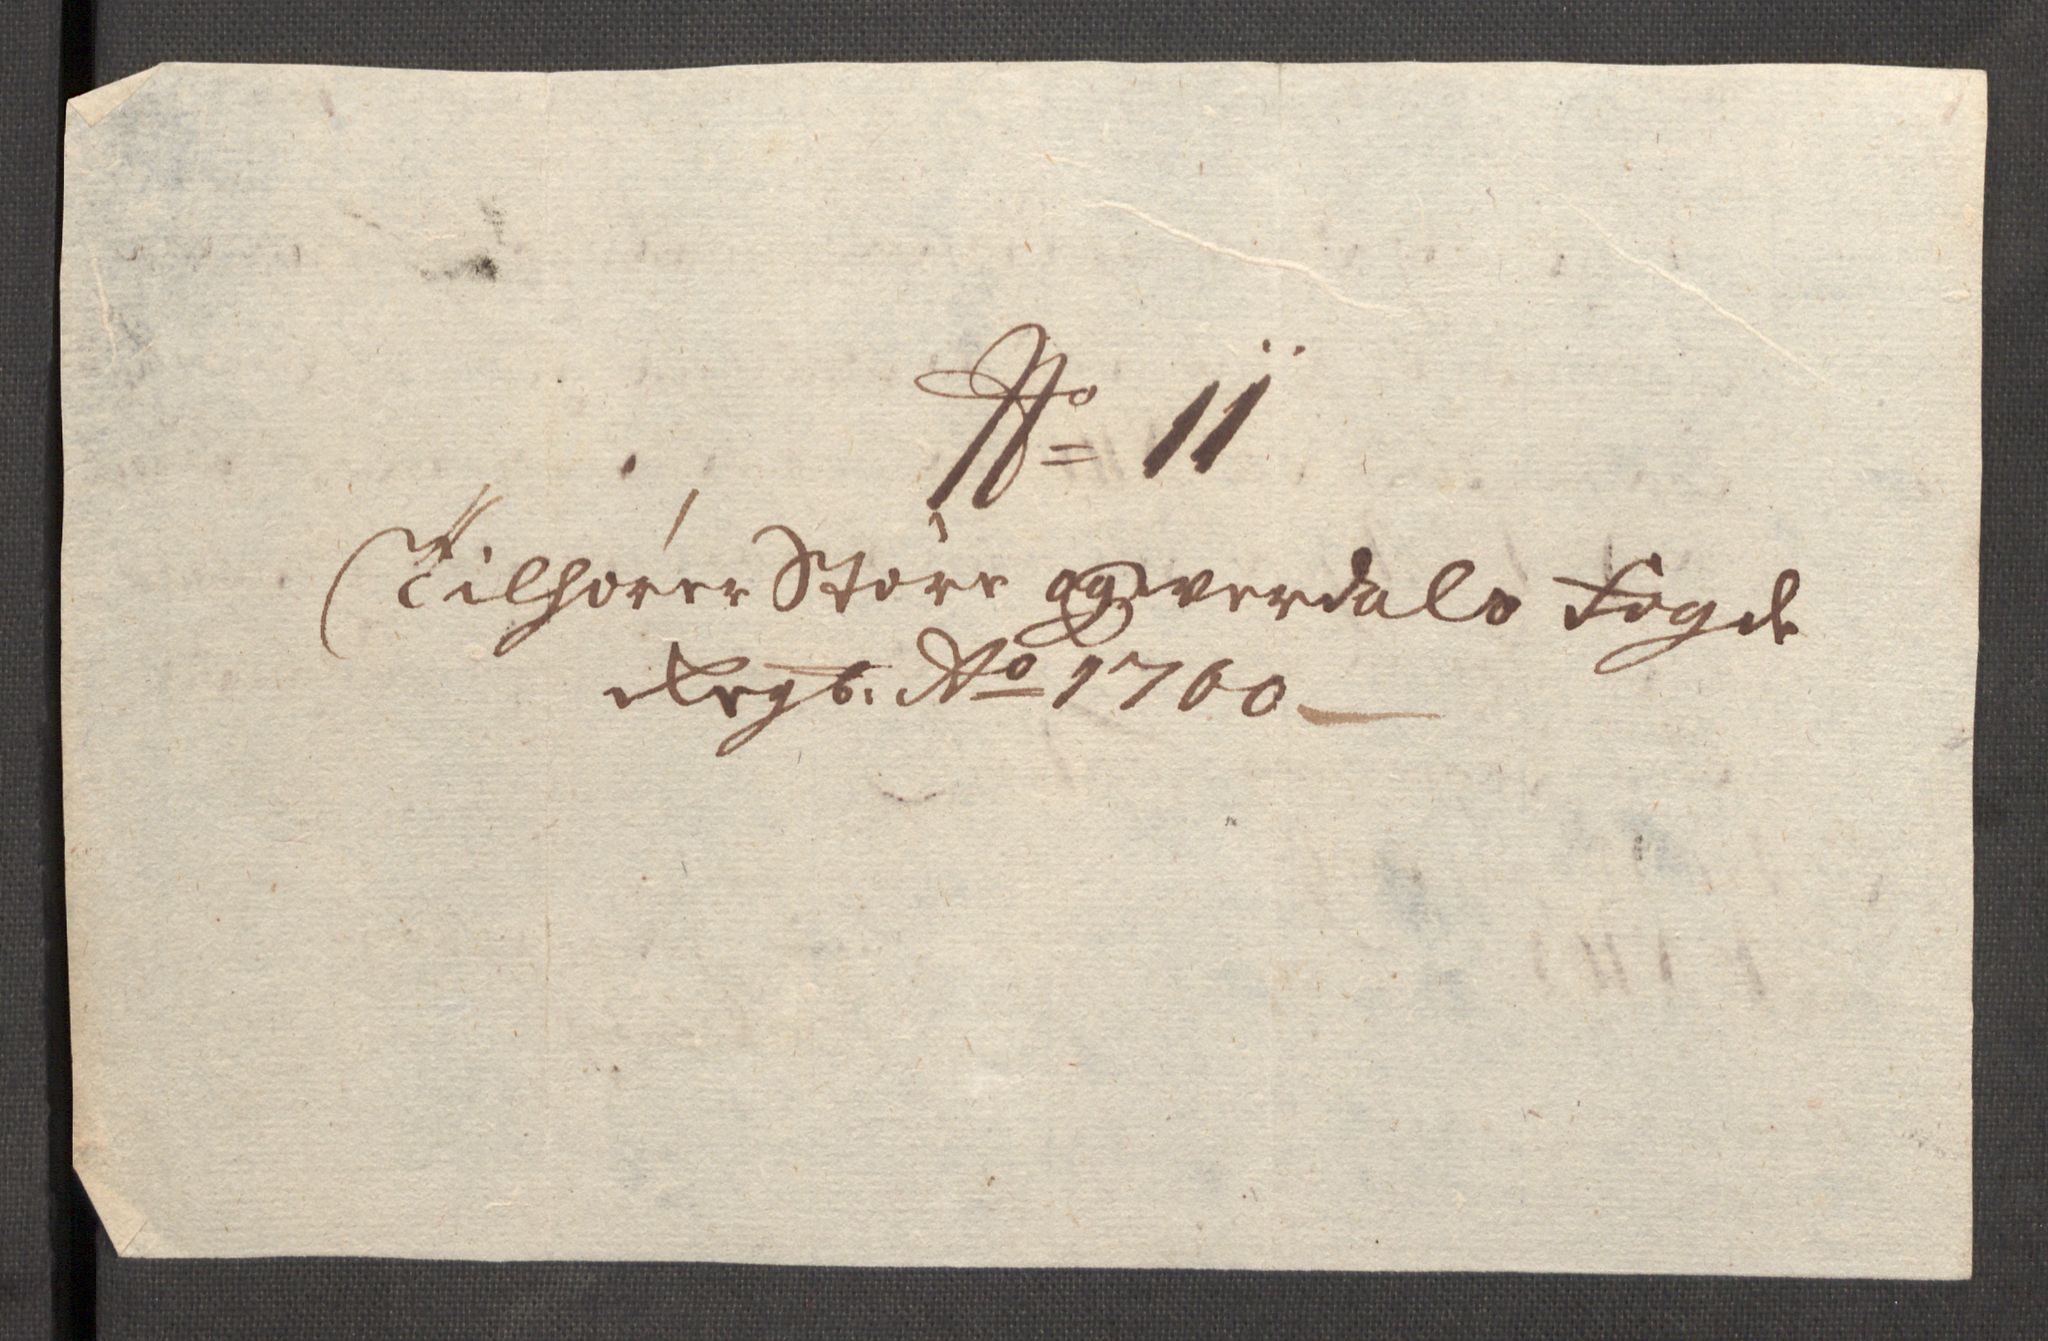 No 11
Tilhörer Störe og verdals Fogde
Regb. Ao 1700